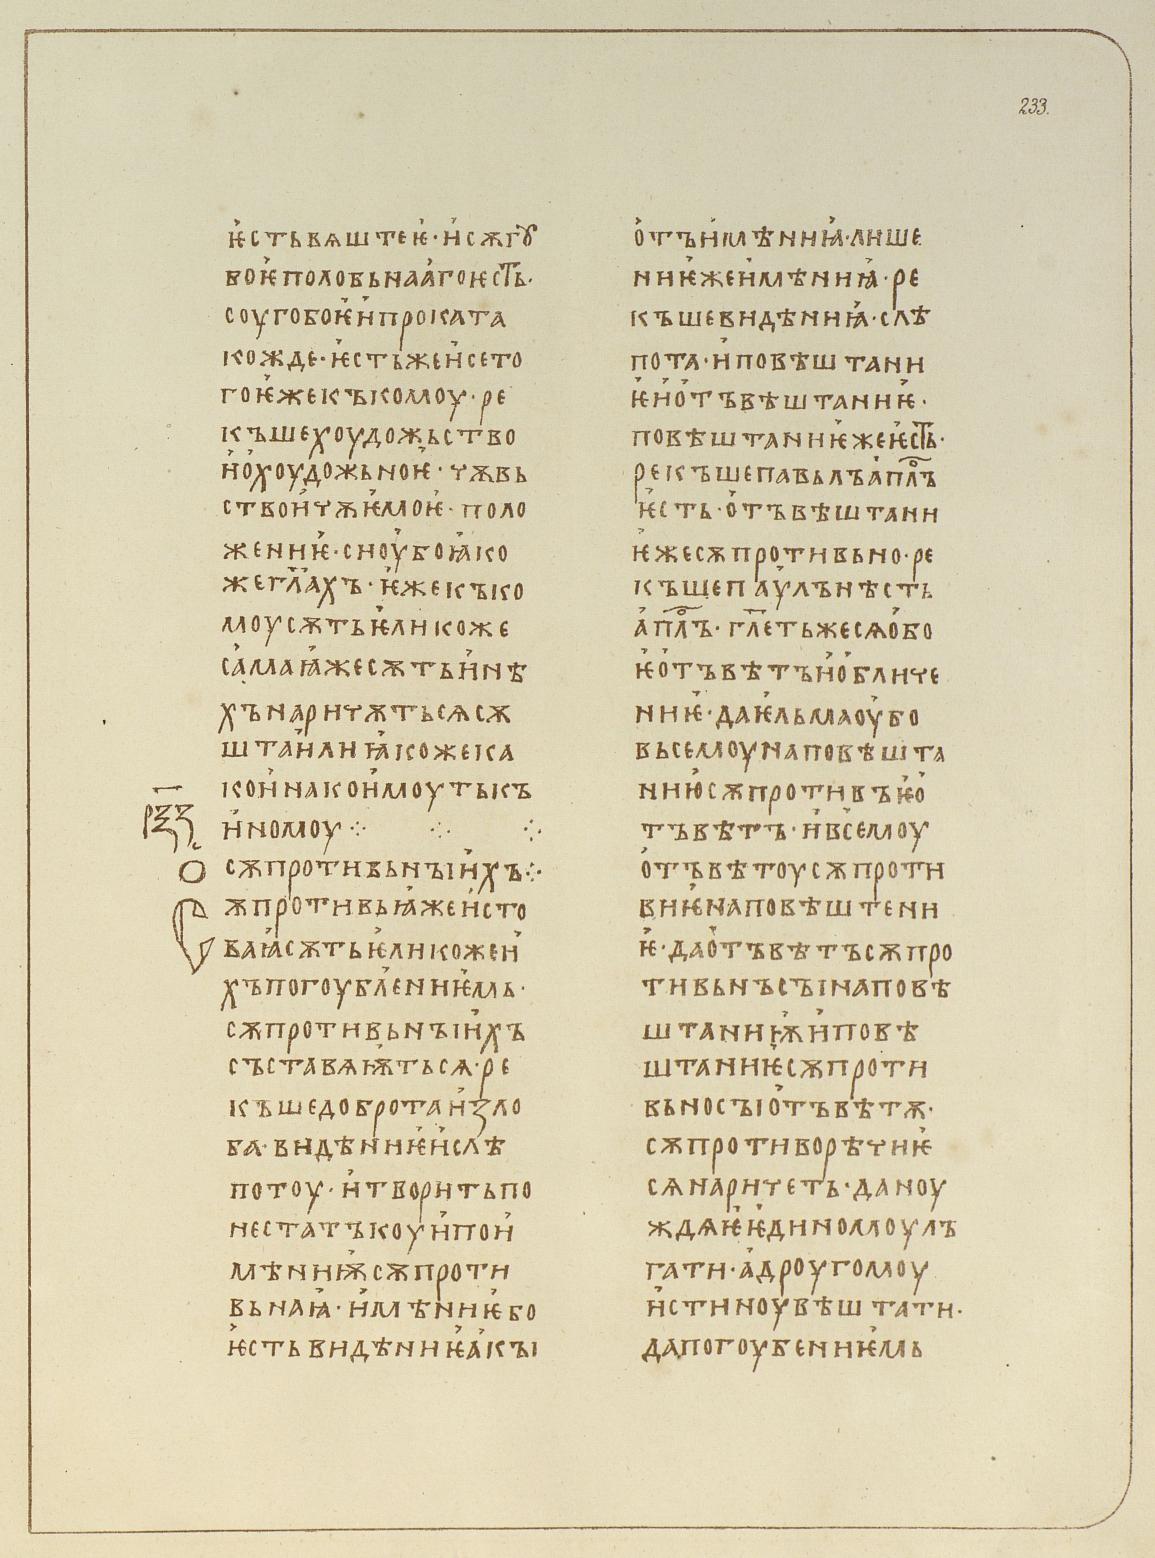 233.
ѥстьвѧштеѥ·исѫгꙋ
боѥполовьнаагоѥсть·
соугобоѥипроката
кождє·ѥстьжеисето
гоѥжекъкомоу·ре
къшехоудожьство
иохоудожьноѥ·чѫвь
ствоичѫѥмоѥ·поло
жениѥ·сноубоꙗко
жегл҃ахъ·ѥжекъко
моусѫтьѥликоже
самаꙗжесѫтьинѣ
хъначѫтьсѧсѫ
штаилиꙗкожека
коинакоимоутькъ
рꙁꙁ
иномоу⁘ ⁘ ⁘
О сѫпротивьнꙑихъ⁘
Сѫпротивьꙗжеисто
ваꙗсѫтьѥликожеи
хъпогоублениѥмь·
сѫпротивьнꙑихъ
съставѧѭтьсѧ·ре
къшедобротаиꙁло
ба·видѣниѥислѣ
потоу·итворитьпо
нестатъкоуипои
мѣниѭсѫпроти
вьнаꙗ·имѣниѥбо
ѥстьвидѣниѥакꙑ
отъимѣниꙗ·лише
ниѥжеимѣниꙗ·ре
къшевидѣниꙗ·слѣ
пота·иповѣштани
ѥиотъвѣштаниѥ·
повѣштаниѥжеѥсть·
рекъшепавьлъап҃лъ
ѥсть·отъвѣштани
ѥжесѫпротивьно·ре
къшепаулънѣсть
ап҃лъ·гл҃етьжесѧобо
ѥотъвѣтъиобличе
ниѥ·даѥльмаоубо
вьсемоунаповѣшта
ниюсѫпротивъѥо
тъвѣтъ·ивсемоу
отъвѣтоусѫпроти
виѥнаповѣштени
ѥ·даотъвѣтъсѫпро
тивьнъсꙑнаповѣ
штаниѭиповѣ
штаниѥсѫпроти
вьносꙑотъвѣтѫ·
сѫпротиворѣчиѥ
сѧнаричеть·даноу
ждѧѥѥдиномоулъ
гати·адроугомоу
истиноувѣштати·
дапогоубениѥмь